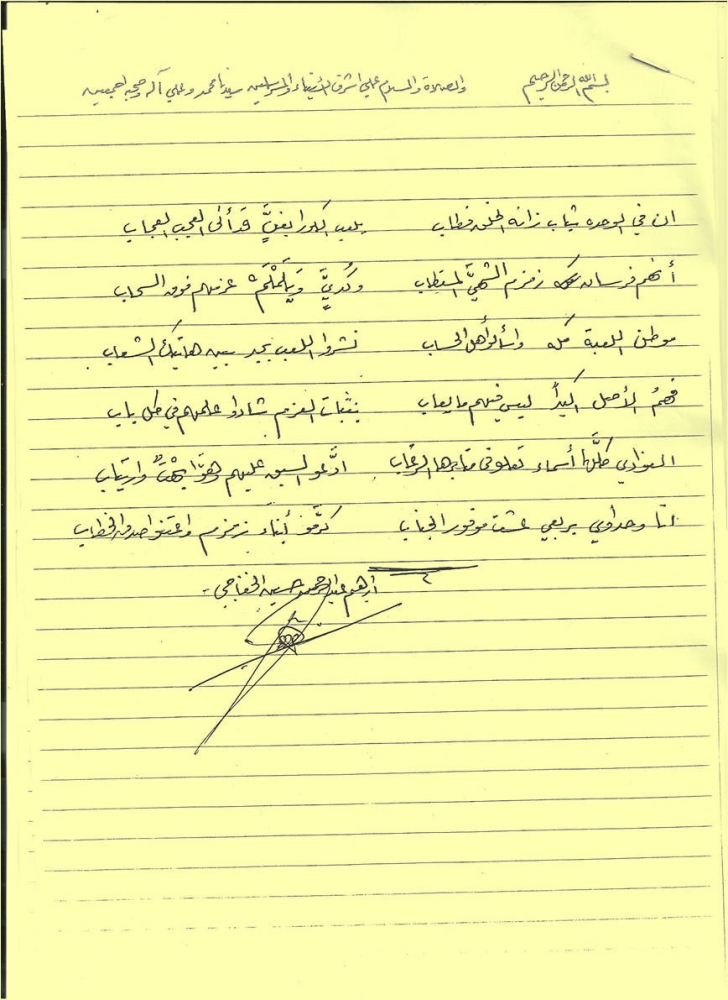 بسم الله الرحمن الرحيم والصلاة والسلام على اشرف الأنبياء والمرسلين سيدنا محمد وعلى آله وصحبه اجمعين
ان في الوحده شباب زانه الخلق فطاب يلعب الكورا بفنٍّ قد أتى العجب العجاب
أنهم فرسان زمزم الشهيِّ المستطاب وكُديٍّ ويلملم عزمهم فوق السحاب
موطن اللعبة مكه واسألوا أهل الحساب نشروا اللعب بجد بين هاتيك الشعاب
فهمُ الأصل اكيداً ليس فيهم ما يعاب بثبات العزم شادوا علمهم في كل باب
النوادي كلها أسماء تعلو في الرقاب ادَّعو السبق عليهم وارتياب
انا وحداوي بربعي عشت موفور الجناب كرَّمو أبناء زمزم واعتنوا صدق الخطاب
ابرهيم عبد الرحمن حسين الخفاجي